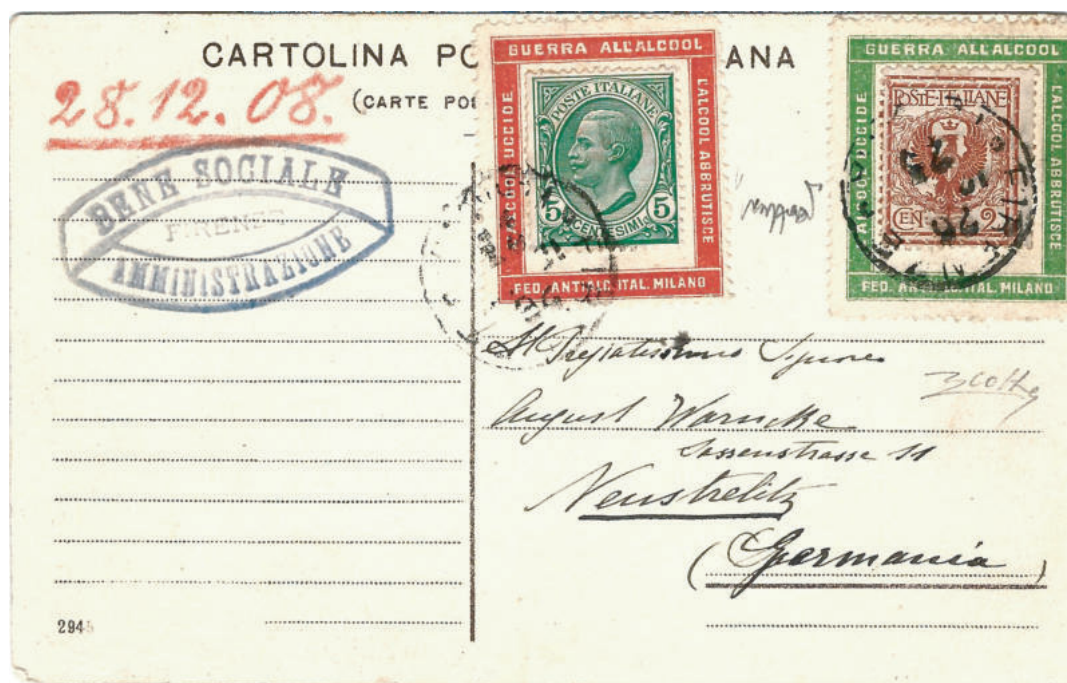 CARTOLINA PO ANA
(CARTE POS
28.12.08.
BENE SOCIALE
FIRENZE
AMMINISTRAZIONE
GUERRA ALL'ALCOOL
L'ALCOOL UCCIDE
L'ALCOOL ABBRUTISCE
FED. ANTIALC. ITAL. MILANO
POSTE ITALIANE
5 5
CENTESIMI
GUERRA ALL'ALCOOL
ALCOOL UCCIDE
L'ALCOOL ABBRUTISCE
FED. ANTIALC. ITAL. MILANO
POSTE ITALIANE
CENT. 2
Al Pregiatissimo Signore
August Warncke
Sassenstrasse 11
Neustrelitz
(Germania)
294